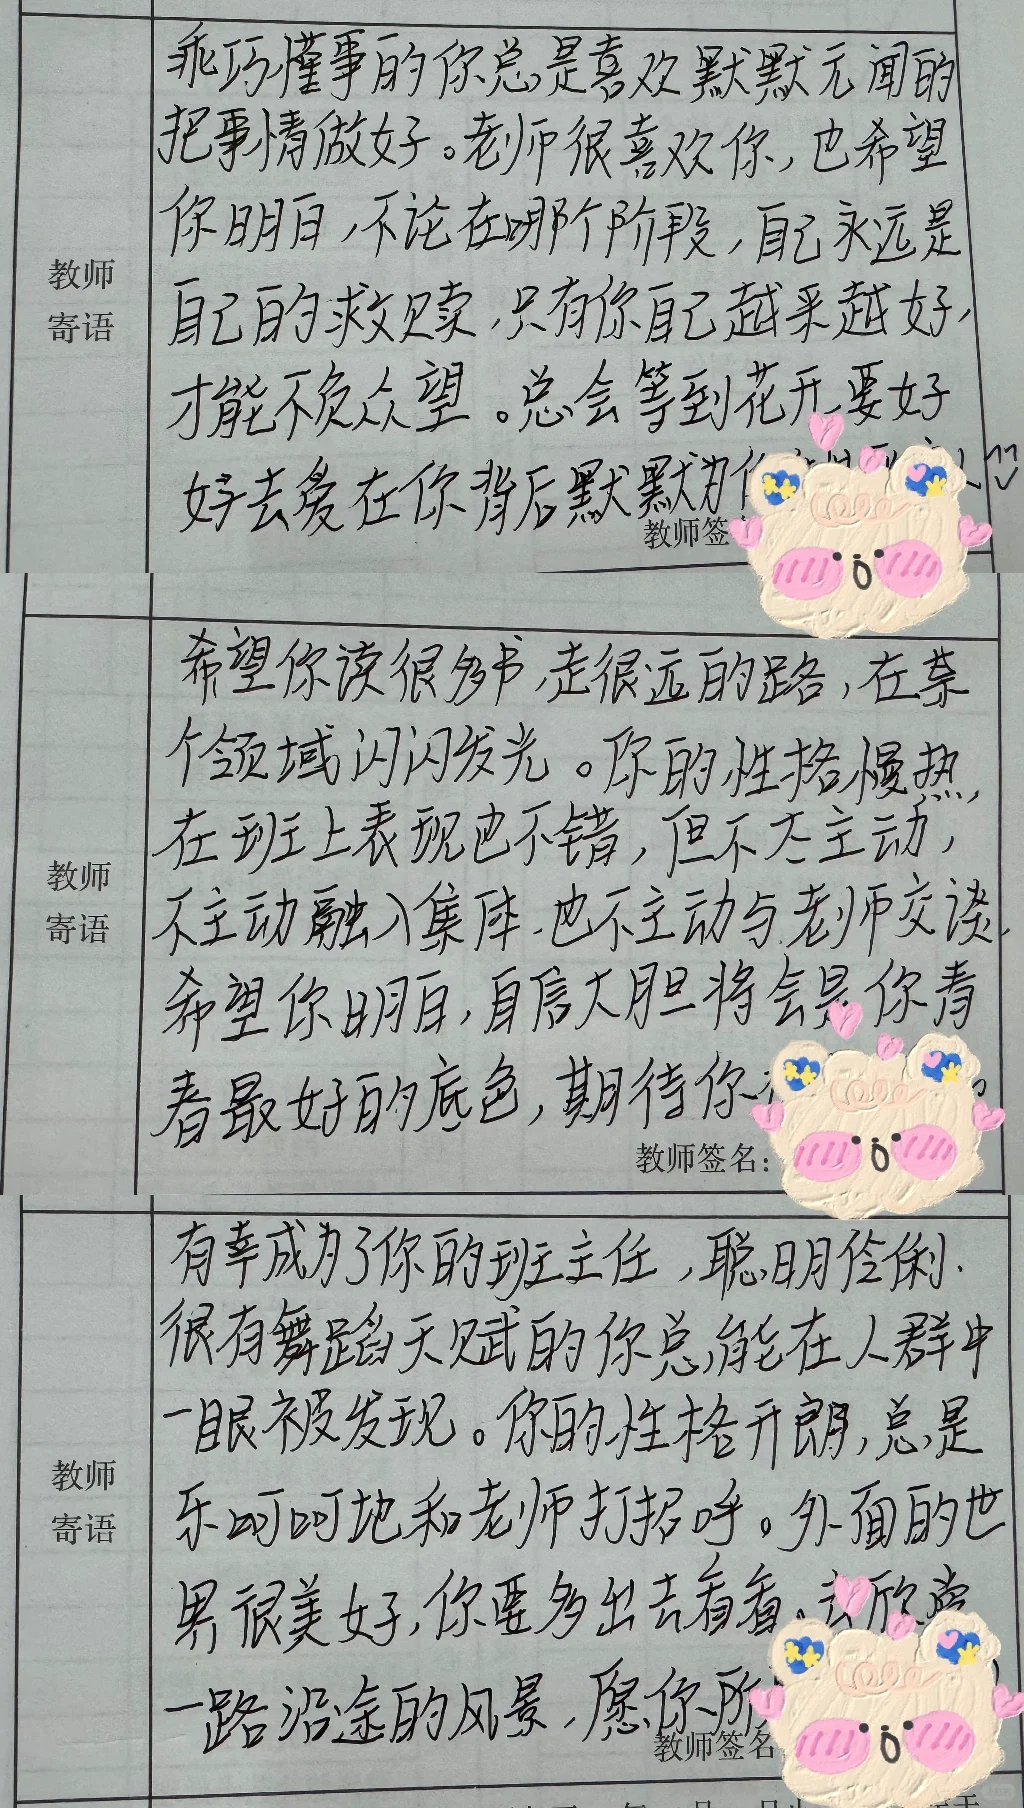 乖巧懂事的你总是喜欢默默无闻的
把事情做好。老师很喜欢你,也希望
你明白,不论在哪个阶段,自己永远是
教师
寄语
自己的救赎,只有你自己越来越好,
才能不负众望。总会等到花开,要好
好去爱在你背后默默为
教师签
希望你读很多书,走很远的路,在某
个领域闪闪发光。你的性格慢热,
在班上表现也不错,但不太主动,
教师
寄语
不主动融入集体.也不主动与老师交谈.
希望你明白,自信大胆将会是你青
春最好的底色,期待你
教师签名:
有幸成为了你的班主任,聪明伶俐.
很有舞蹈天赋的你总能在人群中
一眼被发现。你的性格开朗,总是
教师
寄语
乐呵呵地和老师打招呼。外面的世
界很美好,你要多出去看看。去欣赏
一路沿途的风景,愿你所
教师签名